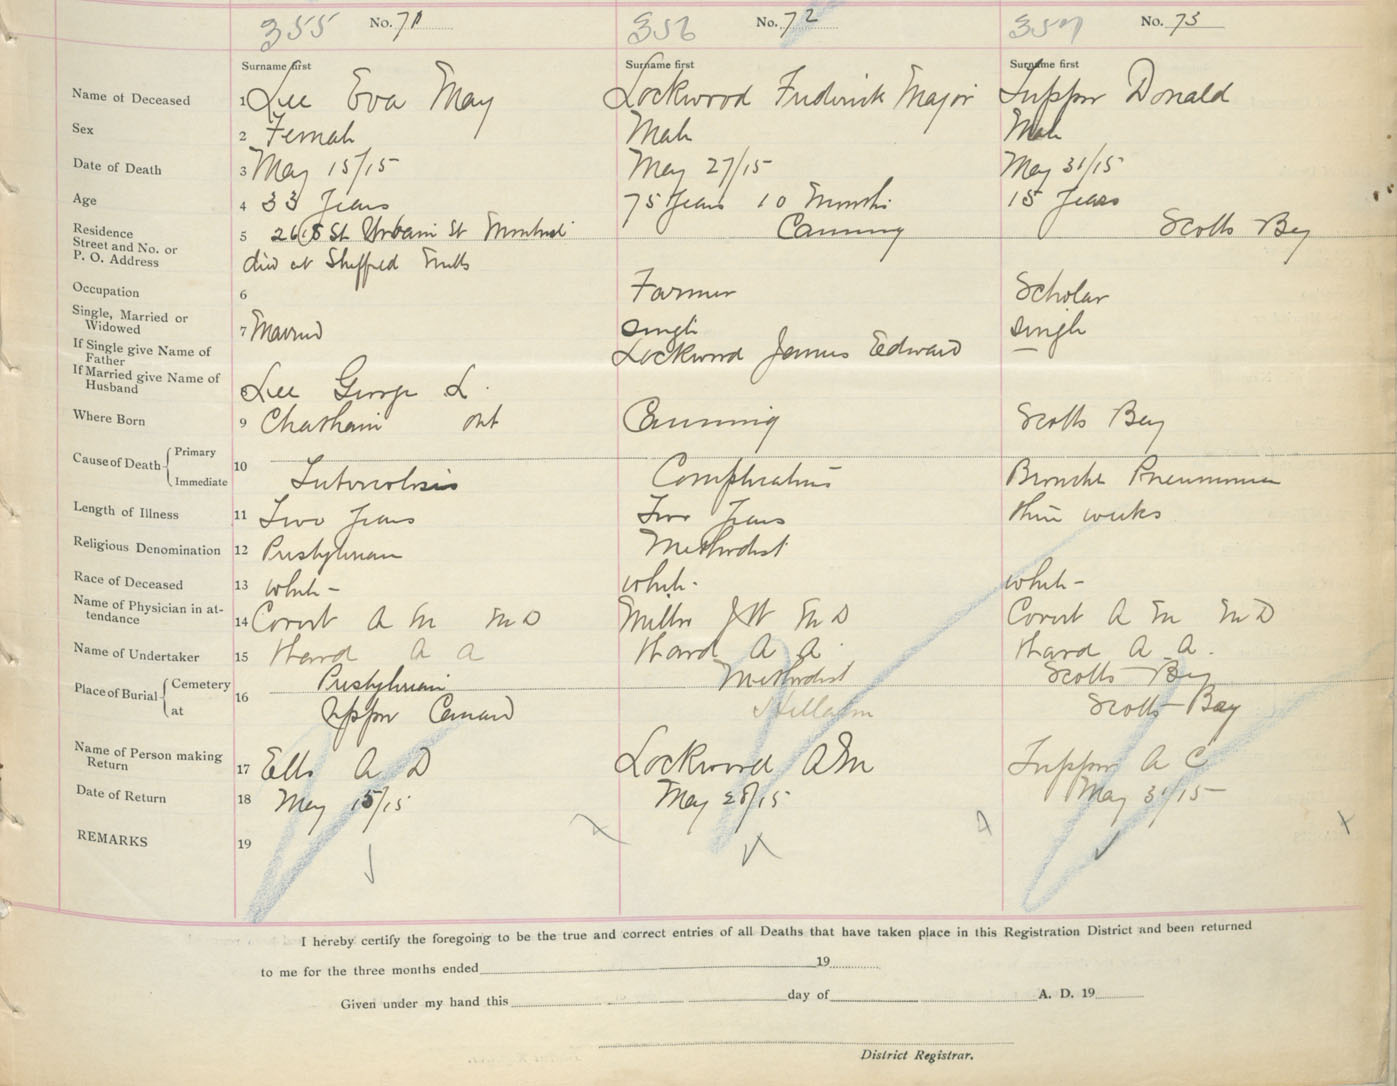 355 No. 71 356 No. 72 357 No. 73
Surname first Surname first Surname first
Name of Deceased 1 Lee Eva May Lockwood Frederick Major Tupper Donald
Sex 2 Female Male Male
Date of Death 3 May 15/15 May 27/15 May 31/15
Age 4 33 Years 75 Years 10 Months 15 Years
Residence
Street and No. or 5 St Urbain St Montreal Canning Scotts Bay
P. O. Address died at Sheffield Mills
Occupation 6 Farmer Scholar
Single, Married or
Widowed 7 Married Single Single
If Single give Name of
Father Lockwood James Edward
If Married give Name of
Husband 8 Lee George L.
Where Born 9 Chatham Ont Canning Scotts Bay
Cause of Death Primary
Immediate 10 Tuberculosis Complications Broncho Pneumonia
Length of Illness 11 Two Years Two Years three weeks
Religious Denomination 12 Presbyterian Methodist
Race of Deceased 13 white white white
Name of Physician in at-
tendance 14 Covert A M M D Miller J W M D Covert A M M D
Name of Undertaker 15 Thard A A Thard A A. Thard A. A.
Place of Burial Cemetery 16 Presbyterian Methodist Scotts Bay
at Upper Canard Hillaton Scotts Bay
Name of Person making
Return 17 Ells A D Lockwood A M Tupper A C
Date of Return 18 May 15/15 May 28/15 May 31/15
REMARKS 19
I hereby certify the foregoing to be the true and correct entries of all Deaths that have taken place in this Registration District and been returned
to me for the three months ended 19
Given under my hand this day of A. D. 19
District Registrar.